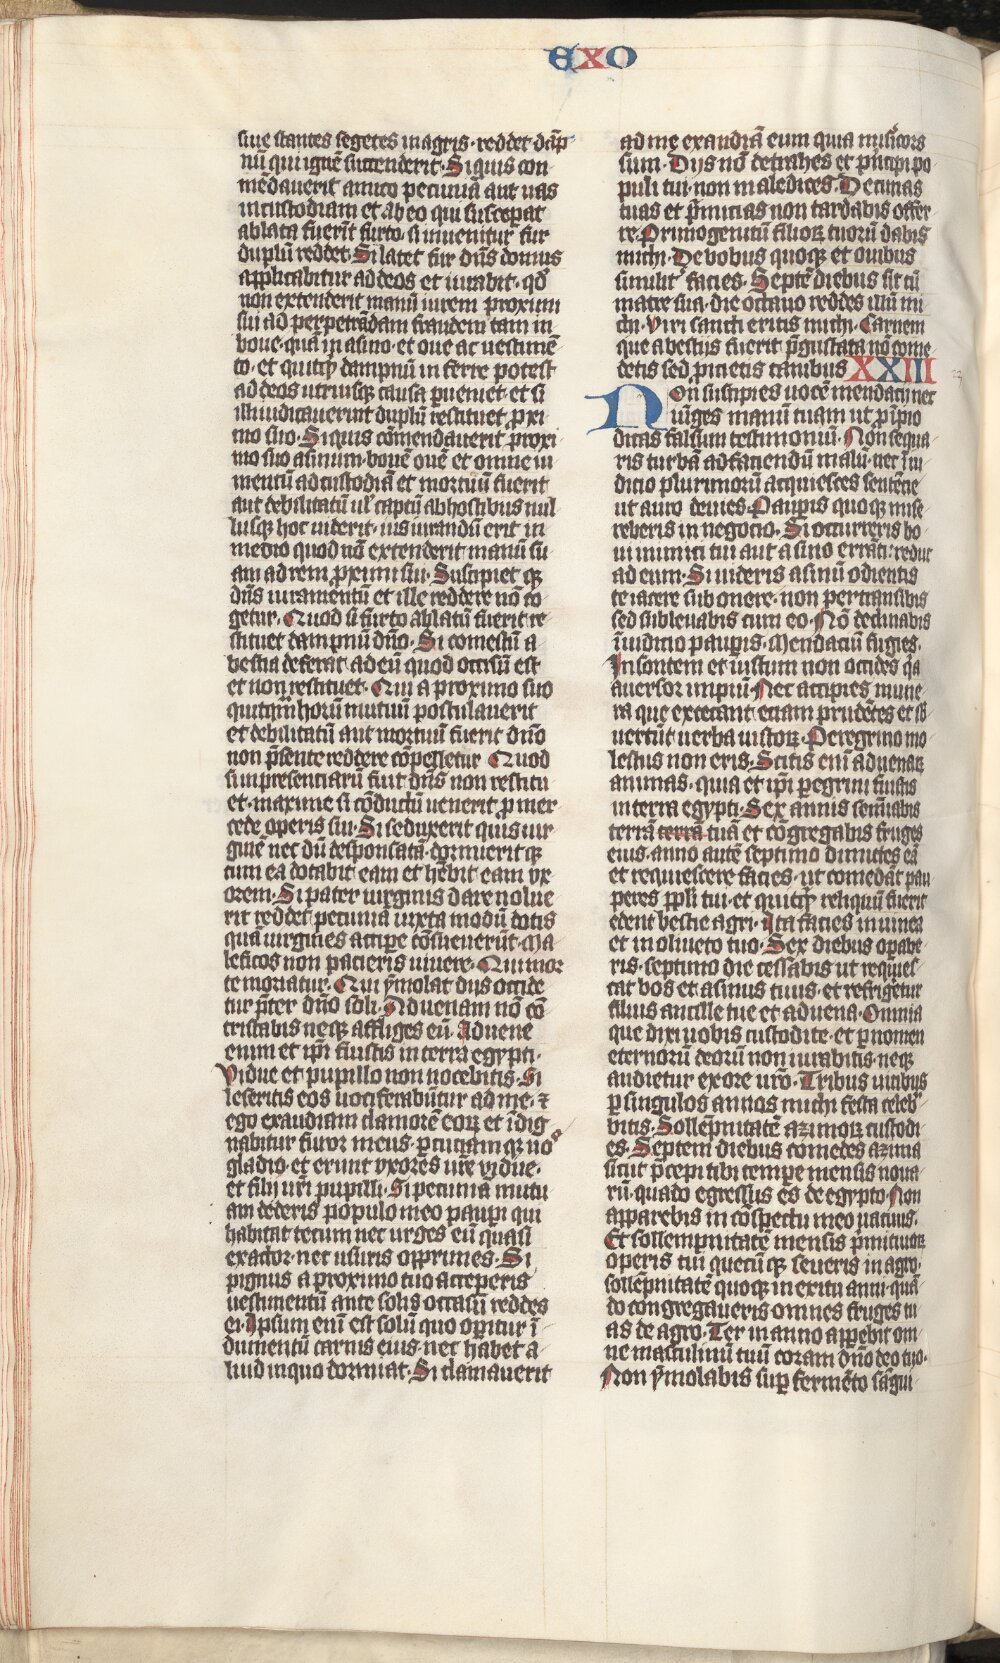 EXO
siue stantes segetes in agris· reddet dāp
nū qui ignē succenderit· Si quis con
mēdauerit amico pecuniā aut uas
in custodiam et ab eo qui susceperat
ablata fuerīt furto· si inuenitur fur
duplū reddet· Si latet fur dn̄s domus
applicabitur ad deos et iurabit· qd̄
non extenderit manū in rem proximi
sui ad perpetrādam fraudem tam in
boue· quā in asino· et oue ac uestimē
to· et quicq̄ dampnū inferre potest
ad deos utriusq; causa ꝑueniet· et si
illi iudicauerint duplū restituet ꝓxi
mo suo· Si quis cōmendauerit proxi
mo suo asinum· bouē ouē et omne iu
mentū ad custodiā et mortuū fuerit
aut debilitatū ul̄ captū ab hostibus nul
lusq; hoc uiderit· ius iurandū erit in
medio quod nō extenderit manū su
am ad rem proximi sui· Suscipiet q;
dn̄s iuramentū et ille reddere nō co
getur· Quod si furto ablatū fuerit re
stituet dampnū dn̄o· Si comestū a
bestia deferat ad eū quod occisū est
et non restituet· Qui a proximo suo
quicqm̄ horū mutuū postulauerit
et debilitatū aut mortuū fuerit dn̄o
non p̄sente reddere cōpelletur Quod
si in presenciarū fuit dn̄s non restitu
et· maxime si cōductū uenerit ꝓ mer
cede operis sui· Si seduxerit quis uir
ginē nec dū desponsatā· dormuerit q;
cum ea dotabit eam et hēbit eam vx
orem· Si pater uirginis dare nolue
rit reddet pecuniā iuxta modū dotis
quā uirgines accipe cōsueuerūt· Ma
leficos non pacieris uiuere· Qui
te moriatur· Qui ymolat diis occide
tur p̄ter dn̄o soli· Aduenam nō cō
tristabis neq; affliges eū· Aduene
enim et ip̄i fuistis in terra egypti·
Vidue et pupillo non nocebitis· Si
leseritis eos uociferabūtur ad me· ⁊
ego exaudiam clamorē eoꝝ et īdig
nabitur furor meus· ꝑcuciam q; uo
gladio· et erunt vxores ur̄e vidue·
et filij ur̄i pupilli· Si pecuniā mutu
am dederis populo meo paupi qui
habitat tecum nec urges eū quasi
exactor· nec usuris opprimes· Si
pignus a proximo tuo acceperis
uestimentū ante solis occasū reddes
ei· Ipsum enī est solū quo operitur ī
dumentū carnis eius· nec habet a
liud in quo dormiat· Si clamauerit
ad me exaudiā eum quia misicors
sum· Dijs nō detrahes et principi po
puli tui· non maledices· Decimas
tuas et p̄micias non tardabis offer
re· Primogenitū filioꝝ tuorū dabis
michi· De bobus quoq; et ouibus
similit̄ facies· Septē diebus sit cū
matre sua· die octauo reddes illū mi
chi· Viri sancti eritis michi· Carnem
que a bestijs fuerit p̄gustata nō come
detis sed ꝓicietis canibus XXIII
Non suscipies uocē mendacij nec
iūges manū tuam ut ꝓ īpio
dicas falsum testimoniū· Non sequa
ris turbā ad faciendū malū· nec ī iu
dicio plurimorū acquiesces sentencie
ut a uero deuies· Pauperis quoq; mise
reberis in negocio· Si occurreris bo
ui inimici tui aut asino errāti· reduc
ad eum· Si uideris asinū odientis
te iacere sub onere· non pertransibis
sed subleuabis cum eo· Nō declinabis
ī iudicio pauperis· Mendaciū fugies·
Insontem et iustum non occides q̄a
auersor impiū· Nec accipies mune
ra que excecant eciam prudētes et sb̄
uertūt uerba iustoꝝ· Peregrino mo
lestus non eris· Scitis enī aduenaꝝ
animas· quia et ip̄i peregrini fuistis
in terra egypti· Sex annis semīabis
terrā terrā tuā et cōgregabis fruges
eius· anno autē septimo dimittes eā
et requiescere facies· ut comedāt pau
peres pp̄li tui· et quicq̄ reliquū fuerit
edent bestie agri· Ita facies in uinea
et in oliueto tuo· Sex diebus operabe
ris· septimo die cessabis ut requies
cat bos et asinus tuus· et refrigetur
filius ancille tue et aduena· Omnia
que dixi uobis custodite· et ꝑ nomen
eternorū deorū non iurabitis· neq;
audietur ex ore ur̄o· Tribus uicibus
ꝑ singulos annos michi festa celeb̄
bitis· Sollēpnitatē azimoꝝ custodi
es· Septem diebus comedes azima
sicut p̄cepi tibi tempe mensis noua
rū· quādo egressus es de egypto· Non
apparebis in cōspectu meo uacuus·
Et sollempnitatē mensis p̄mitiuoꝝ
operis tui quecūq; seueris in agro·
sollēpnitatē quoq; in exitu anni· quā
do congregaueris omnes fruges tu
as de agro· Ter in anno apparebit om
ne masculinū tuū coram dn̄o deo tuo·
Non ymolabis super fermēto sāgui